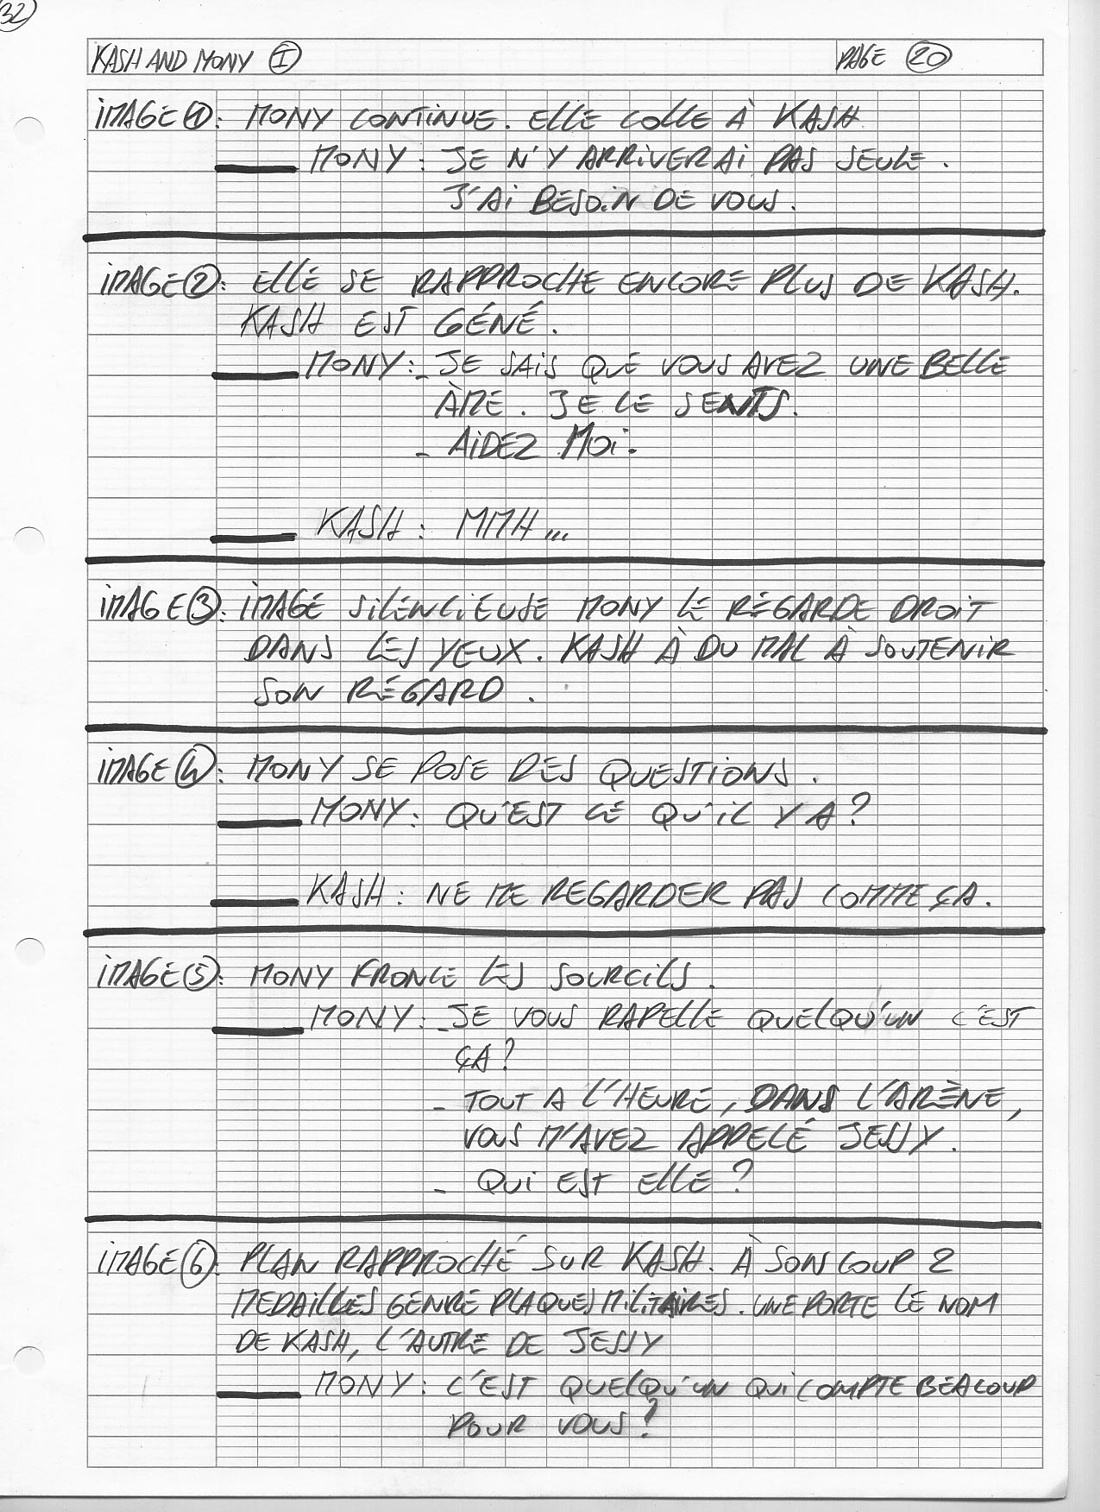 32
KASH AND MONY I
PAGE 20
IMAGE 1: MONY CONTINUE. ELLE COLLE À KASH
MONY: JE N'Y ARRIVERAI PAS SEULE.
J'AI BESOIN DE VOUS.
IMAGE 2: ELLE SE RAPPROCHE ENCORE PLUS DE KASH.
KASH EST GÉNÉ.
MONY: - JE SAIS QUE VOUS AVEZ UNE BELLE
ÀME. JE LE SENTS.
- AIDEZ MOI.
KASH: MMH...
IMAGE 3: IMAGE SILENCIEUSE MONY LE REGARDE DROIT
DANS LES YEUX. KASH À DU MAL À SOUTENIR
SON REGARD.
IMAGE 4: MONY SE POSE DES QUESTIONS.
MONY: QU'EST CE QU'IL Y A?
KASH: NE ME REGARDER PAS COMME ÇA.
IMAGE 5: MONY FRONCE LES SOURCILS.
MONY: - JE VOUS RAPELLE QUELQU'UN C'EST
ÇA?
- TOUT A L'HEURE, DANS L'ARÈNE,
VOUS M'AVEZ APPELÉ JESSY.
- QUI EST ELLE?
IMAGE 6: PLAN RAPPROCHÉ SUR KASH. À SON COUP 2
MEDAILLES GENRE PLAQUES MILITAIRES. UNE PORTE LE NOM
DE KASH, L'AUTRE DE JESSY
MONY: C'EST QUELQU'UN QUI COMPTE BEACOUP
POUR VOUS?